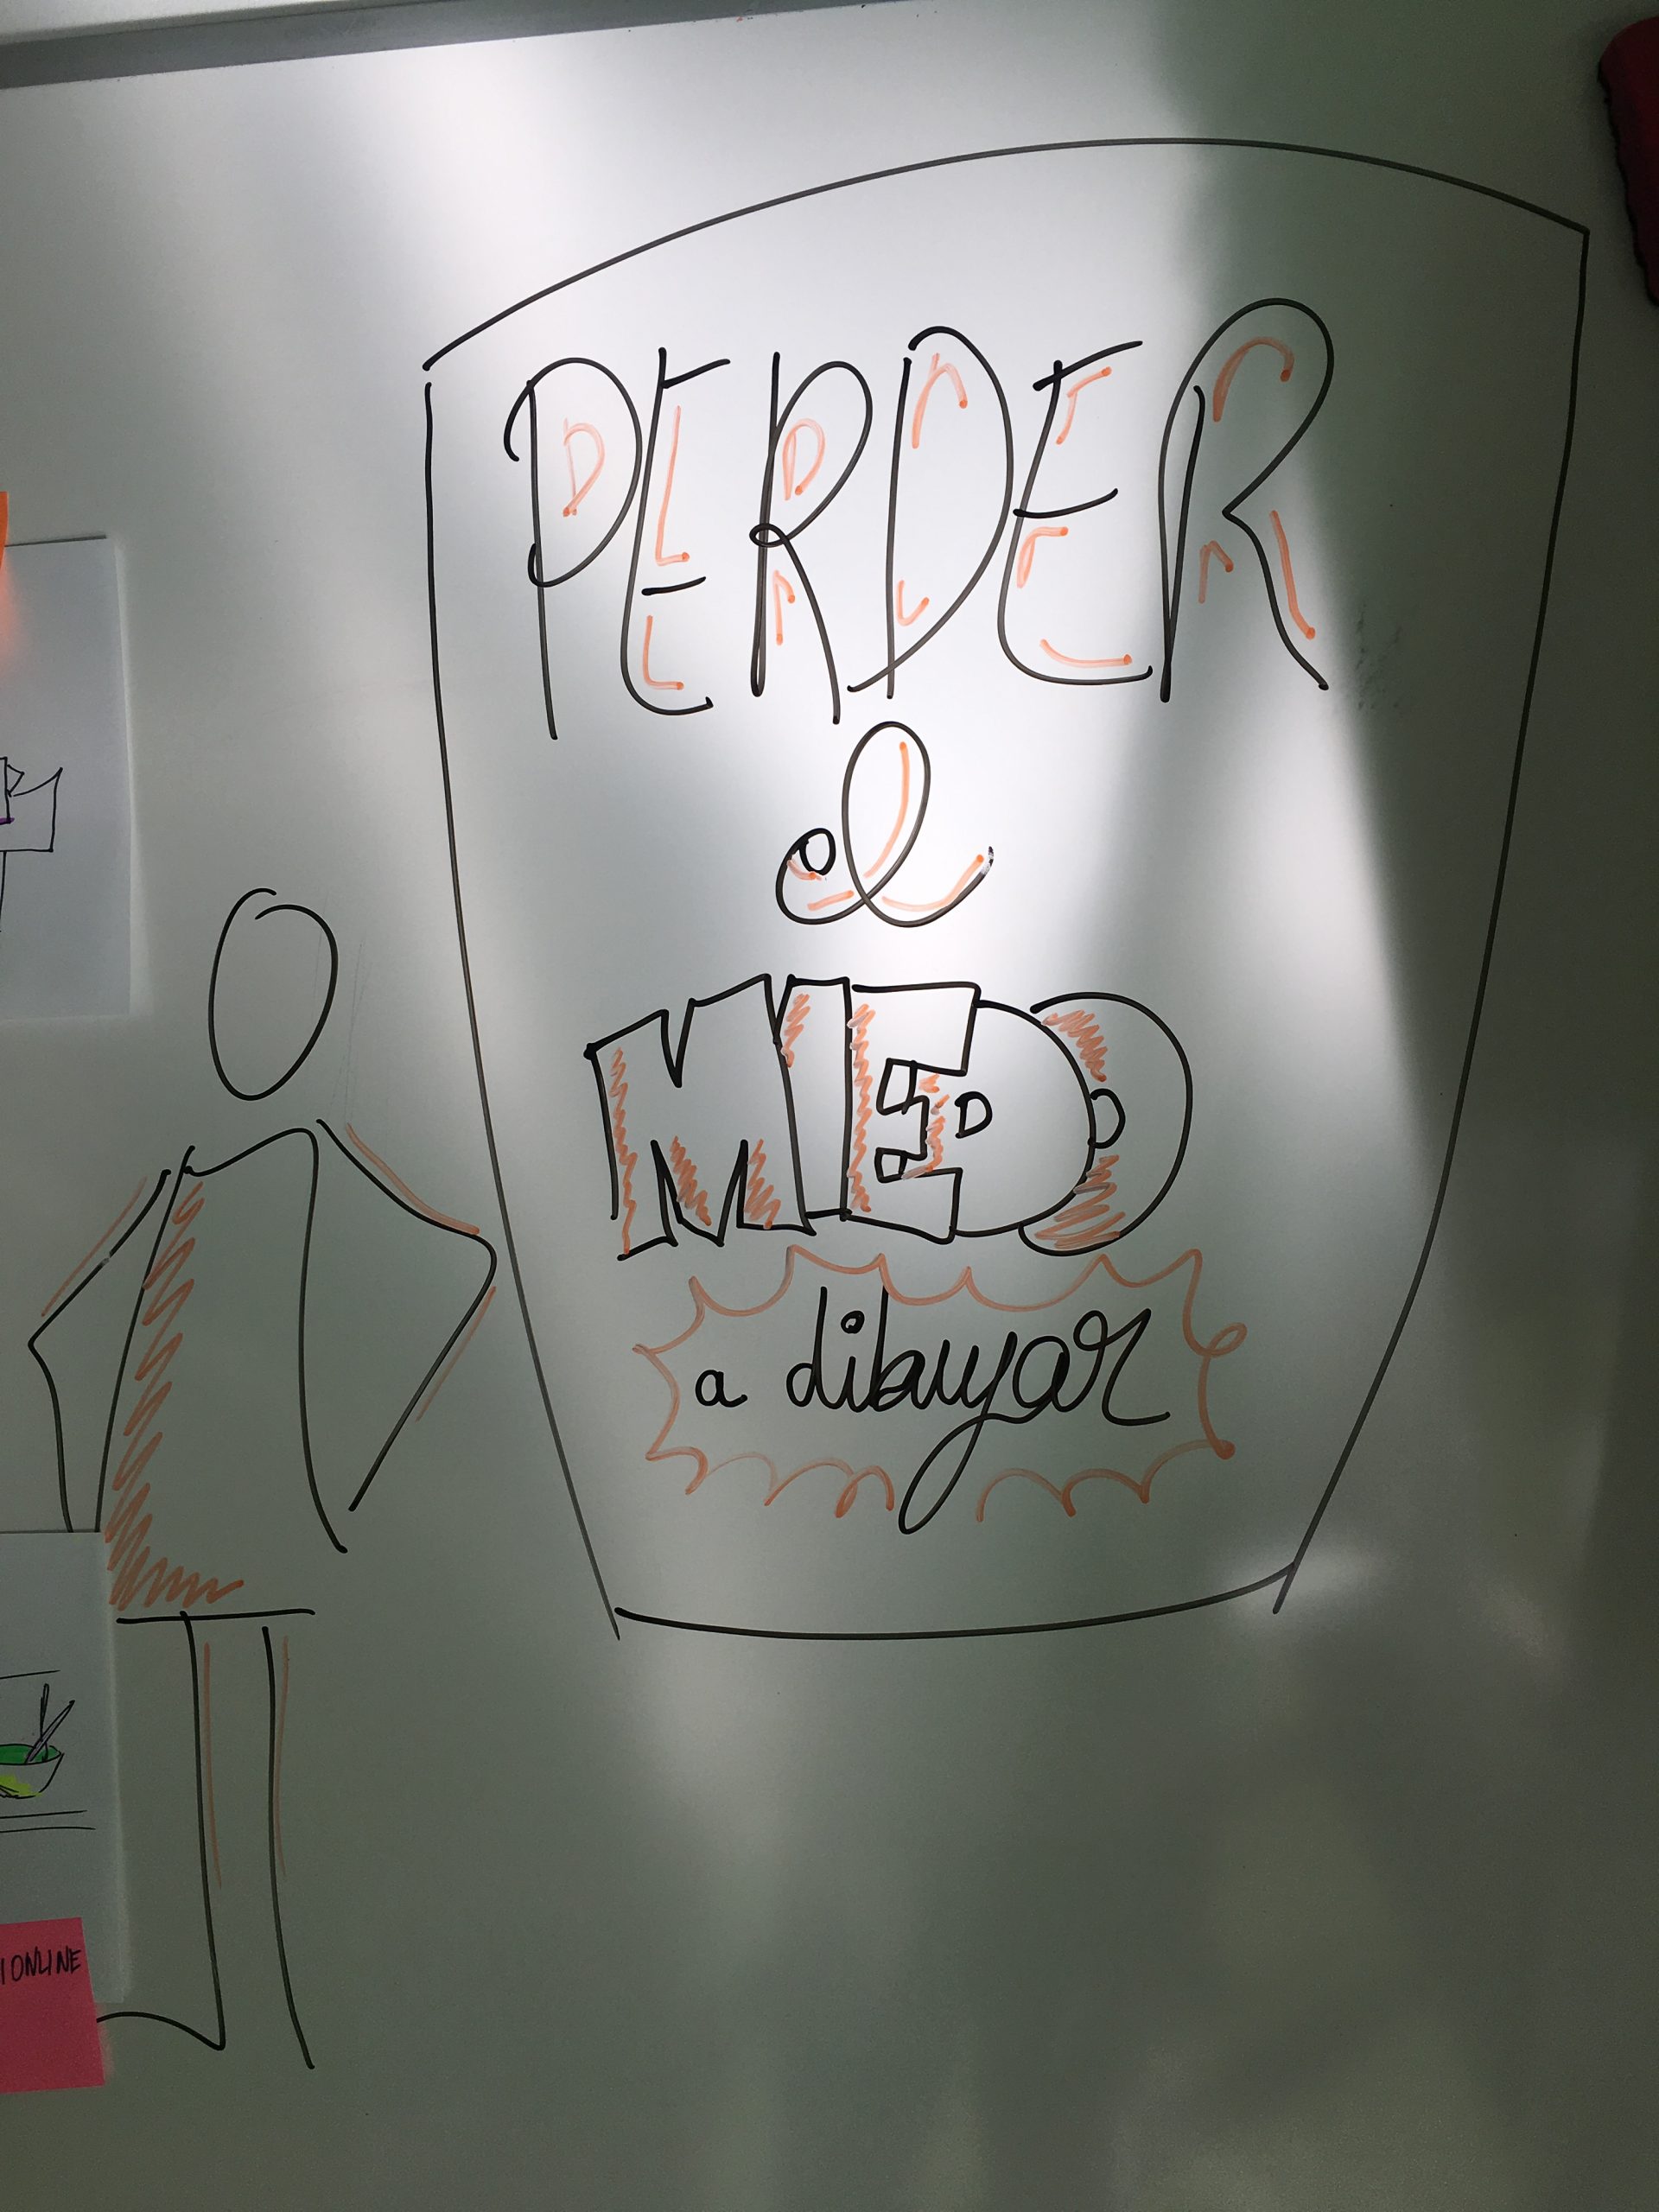 PERDER
el
MIEDO
a dibujar
ONLINE